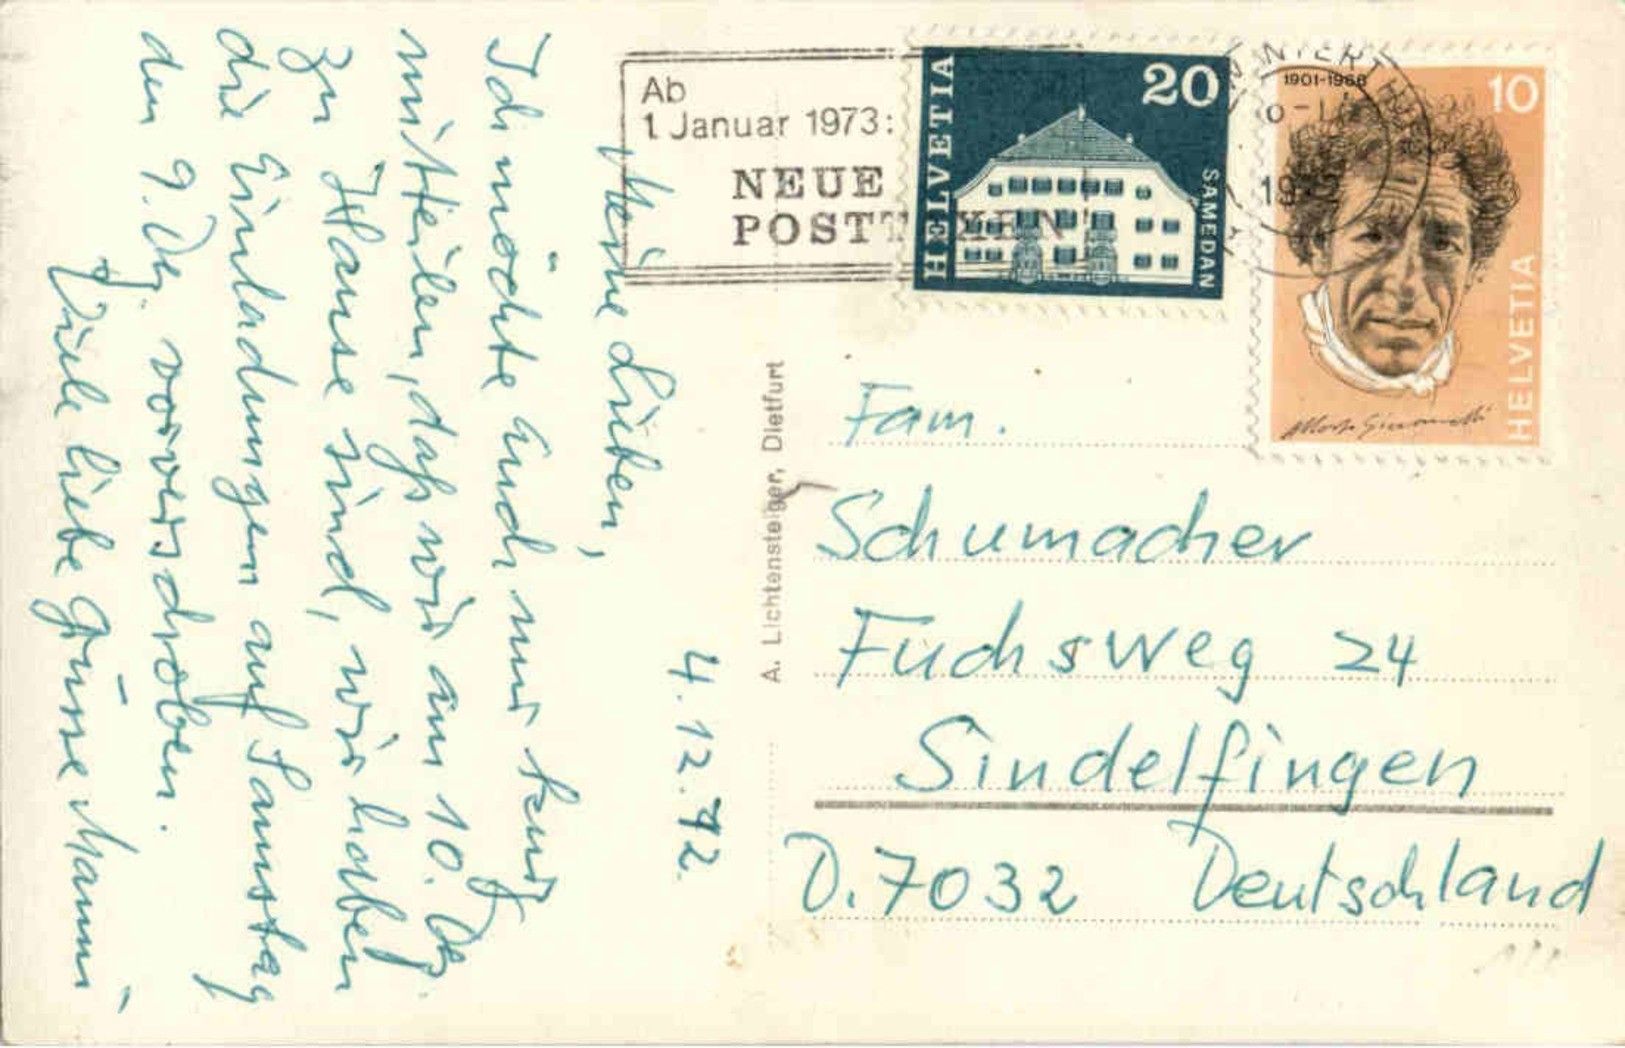 Meine Lieben,
Ich möchte Euch nur kurz
mitteilen, daß wir am 10. Dez.
zu Hause sind, wir haben
die Einladungen auf Samstag
den 9. Dez. vorverschoben.
Viele liebe Grüsse Mammi
4.12.72.
A. Lichtensteiger, Dietfurt
Ab
1. Januar 1973:
NEUE
POSTTAXEN
HELVETIA
20
SAMMEDAN
WINTERTHUR
1901-1966
10
HELVETIA
Alberto Giacometti
Fam.
Schumacher
Fuchsweg 24
Sindelfingen
D.7032 Deutschland